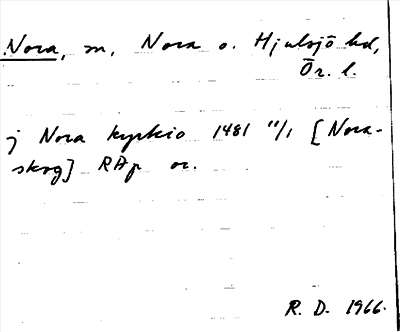 Nora, sn, Nora o. Hjulsjö hd,
Ör. l.
j Nora kyrkio 1481 11/1 [Nora-
skog] RAp or.
R. D. 1966.